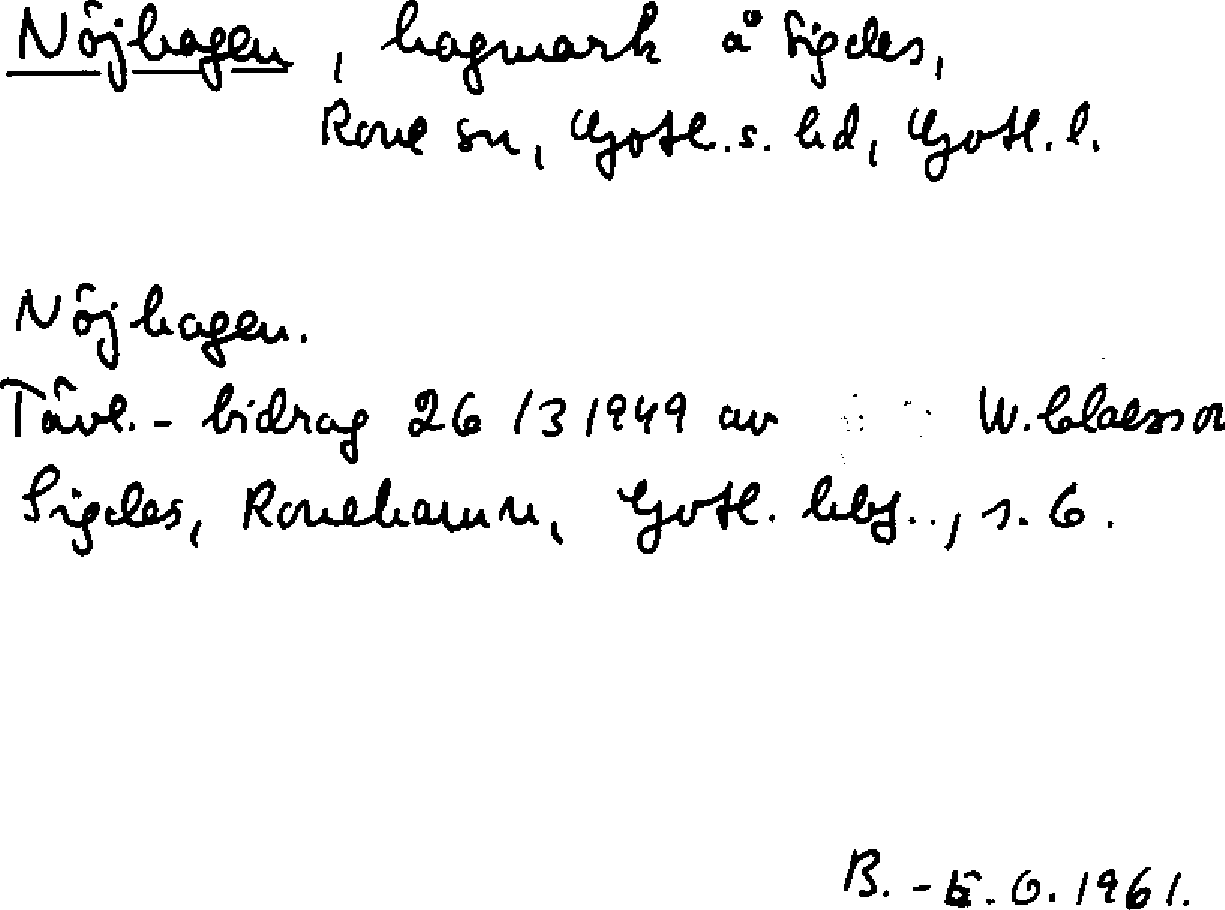 Nöjhagen, hagmark å Sigdes,
Rone sn, Gotl.s. hd, Gotl.l.
Nöjhagen.
Tävl.-bidrag 26/3 1949 av W. Claesson
Sigdes, Ronehamn, Gotl. hbf.., s. 6.
B. -E. O. 1961.